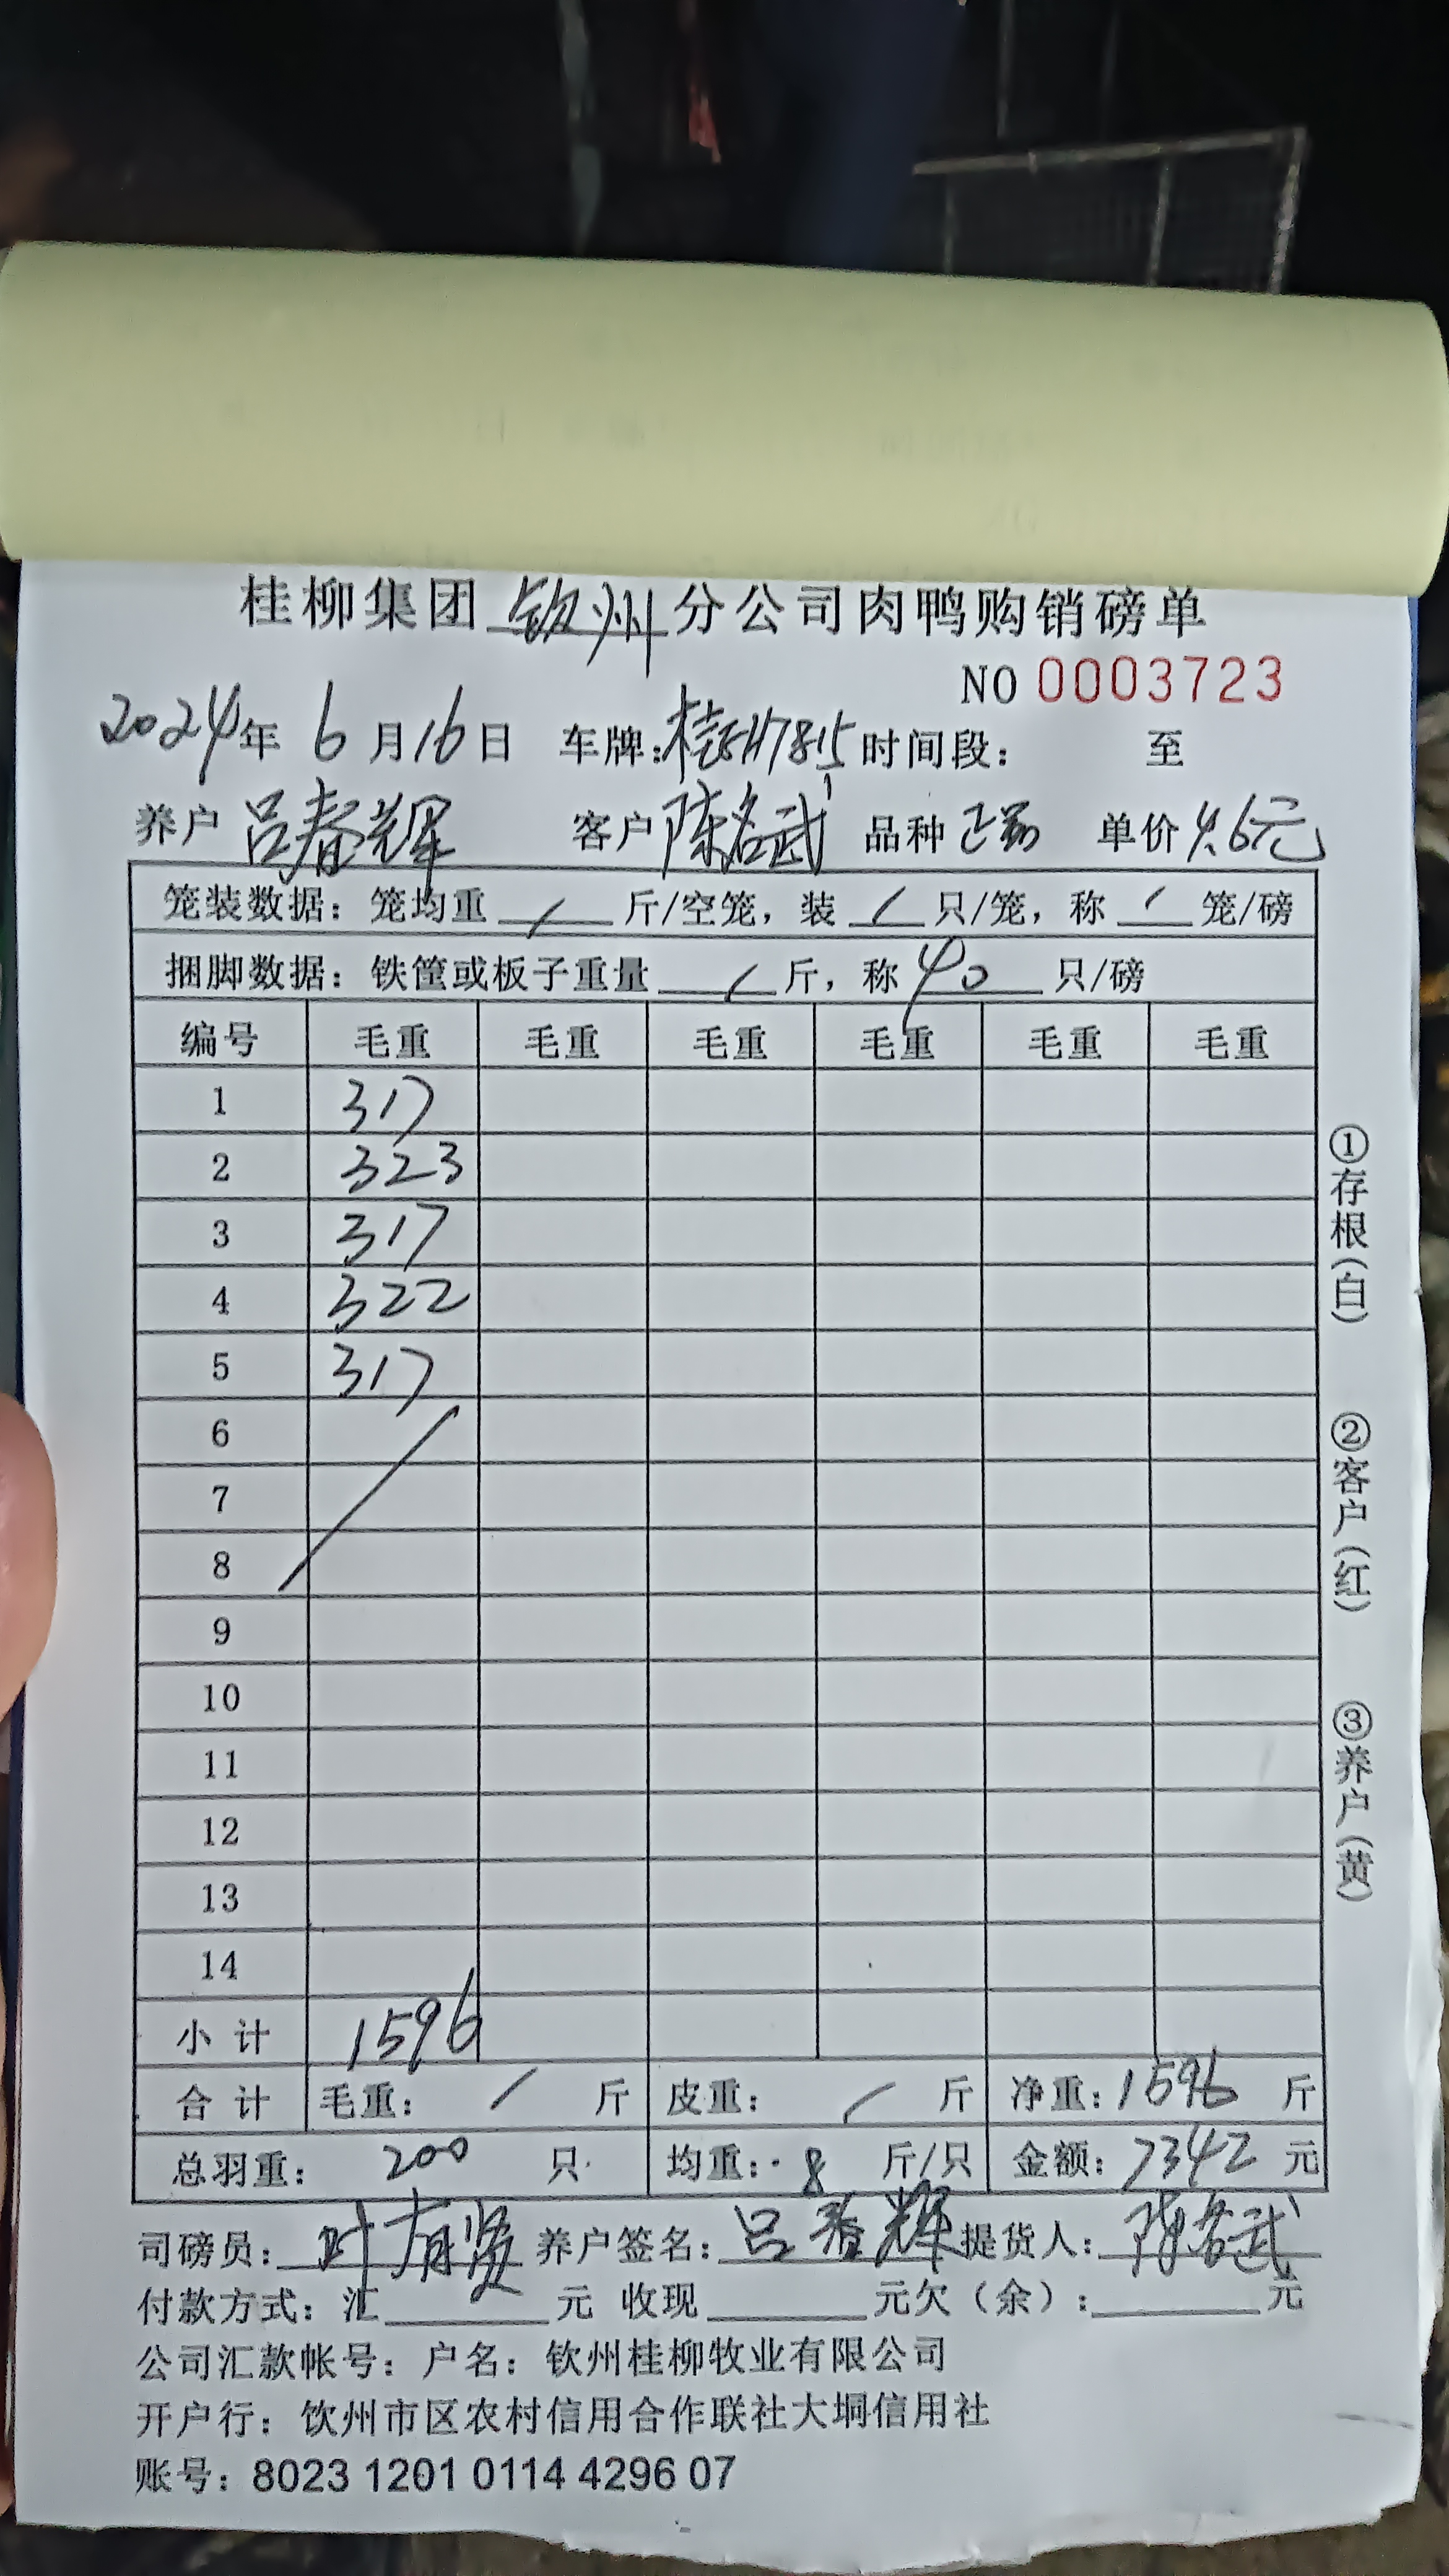 桂柳集团 钦州 分公司肉鸭购销磅单
NO 0003723
2024年 6月16日 车牌:桂 H7815 时间段: 至
养户 吕春辉 客户 陈名武 品种 单价 4.6元
笼装数据: 笼均重 / 斤/空笼, 装 / 只/笼, 称 / 笼/磅
捆脚数据: 铁筐或板子重量 / 斤, 称 40 只/磅
编号 毛重 毛重 毛重 毛重 毛重 毛重
1 317
2 323
3 317
4 322
5 317
6
7
8
9
10
11
12
13
14
小计 1596
合计 毛重: / 斤 皮重: / 斤 净重: 1596 斤
总羽重: 200 只 均重: 8 斤/只 金额: 7342 元
司磅员: 叶有贤 养户签名: 吕春辉 提货人: 陈名武
付款方式: 汇 元 收现 元欠(余): 元
公司汇款帐号: 户名: 钦州桂柳牧业有限公司
开户行: 钦州市区农村信用合作联社大垌信用社
账号: 8023 1201 0114 4296 07
①存根(白)
②客户(红)
③养户(黄)